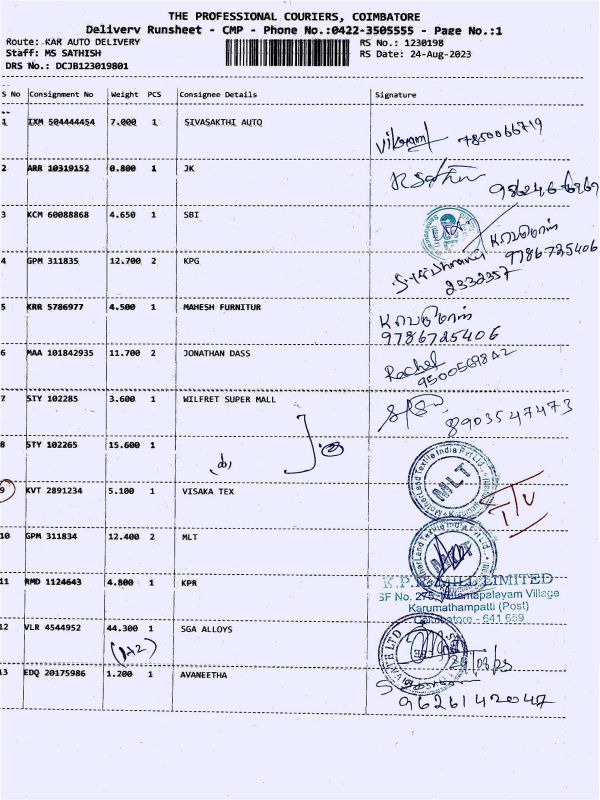 THE PROFESSIONAL COURIERS, COIMBATORE
Delivery Runsheet - CMP - Phone No.:0422-3505555 - Page No.:1
Route: KAR AUTO DELIVERY
RS No.: 1230198
Staff: MS SATHISH
RS Date: 24-Aug-2023
DRS No.: DCJB123019801
S No Consignment No Weight PCS Consignee Details Signature
1 IXM 504444454 7.000 1 SIVASAKTHI AUTO
Vikram 7850066719
2 ARR 10319152 0.800 1 JK
3 KCM 60088868 4.650 1 SBI
4 GPM 311835 12.700 2 KPG
9786725406
2332357
5 KRR 5786977 4.500 1 MAHESH FURNITUR
9786725406
6 MAA 101842935 11.700 2 JONATHAN DASS
Rachel
7 STY 102285 3.600 1 WILFRET SUPER MALL
8903547473
8 STY 102265 15.600 1
MotherLand Textile India Pvt Ltd
MLT
9 KVT 2891234 5.100 1 VISAKA TEX
10 GPM 311834 12.400 2 MLT
11 RMD 1124643 4.800 1 KPR
K.P.R. MILL LIMITED
SF No. 275, Vellamapalayam Village
Karumathampatti (Post)
Coimbatore - 641 659
12 VLR 4544952 44.300 1 SGA ALLOYS
13 EDQ 20175986 1.200 1 AVANEETHA
9626142047